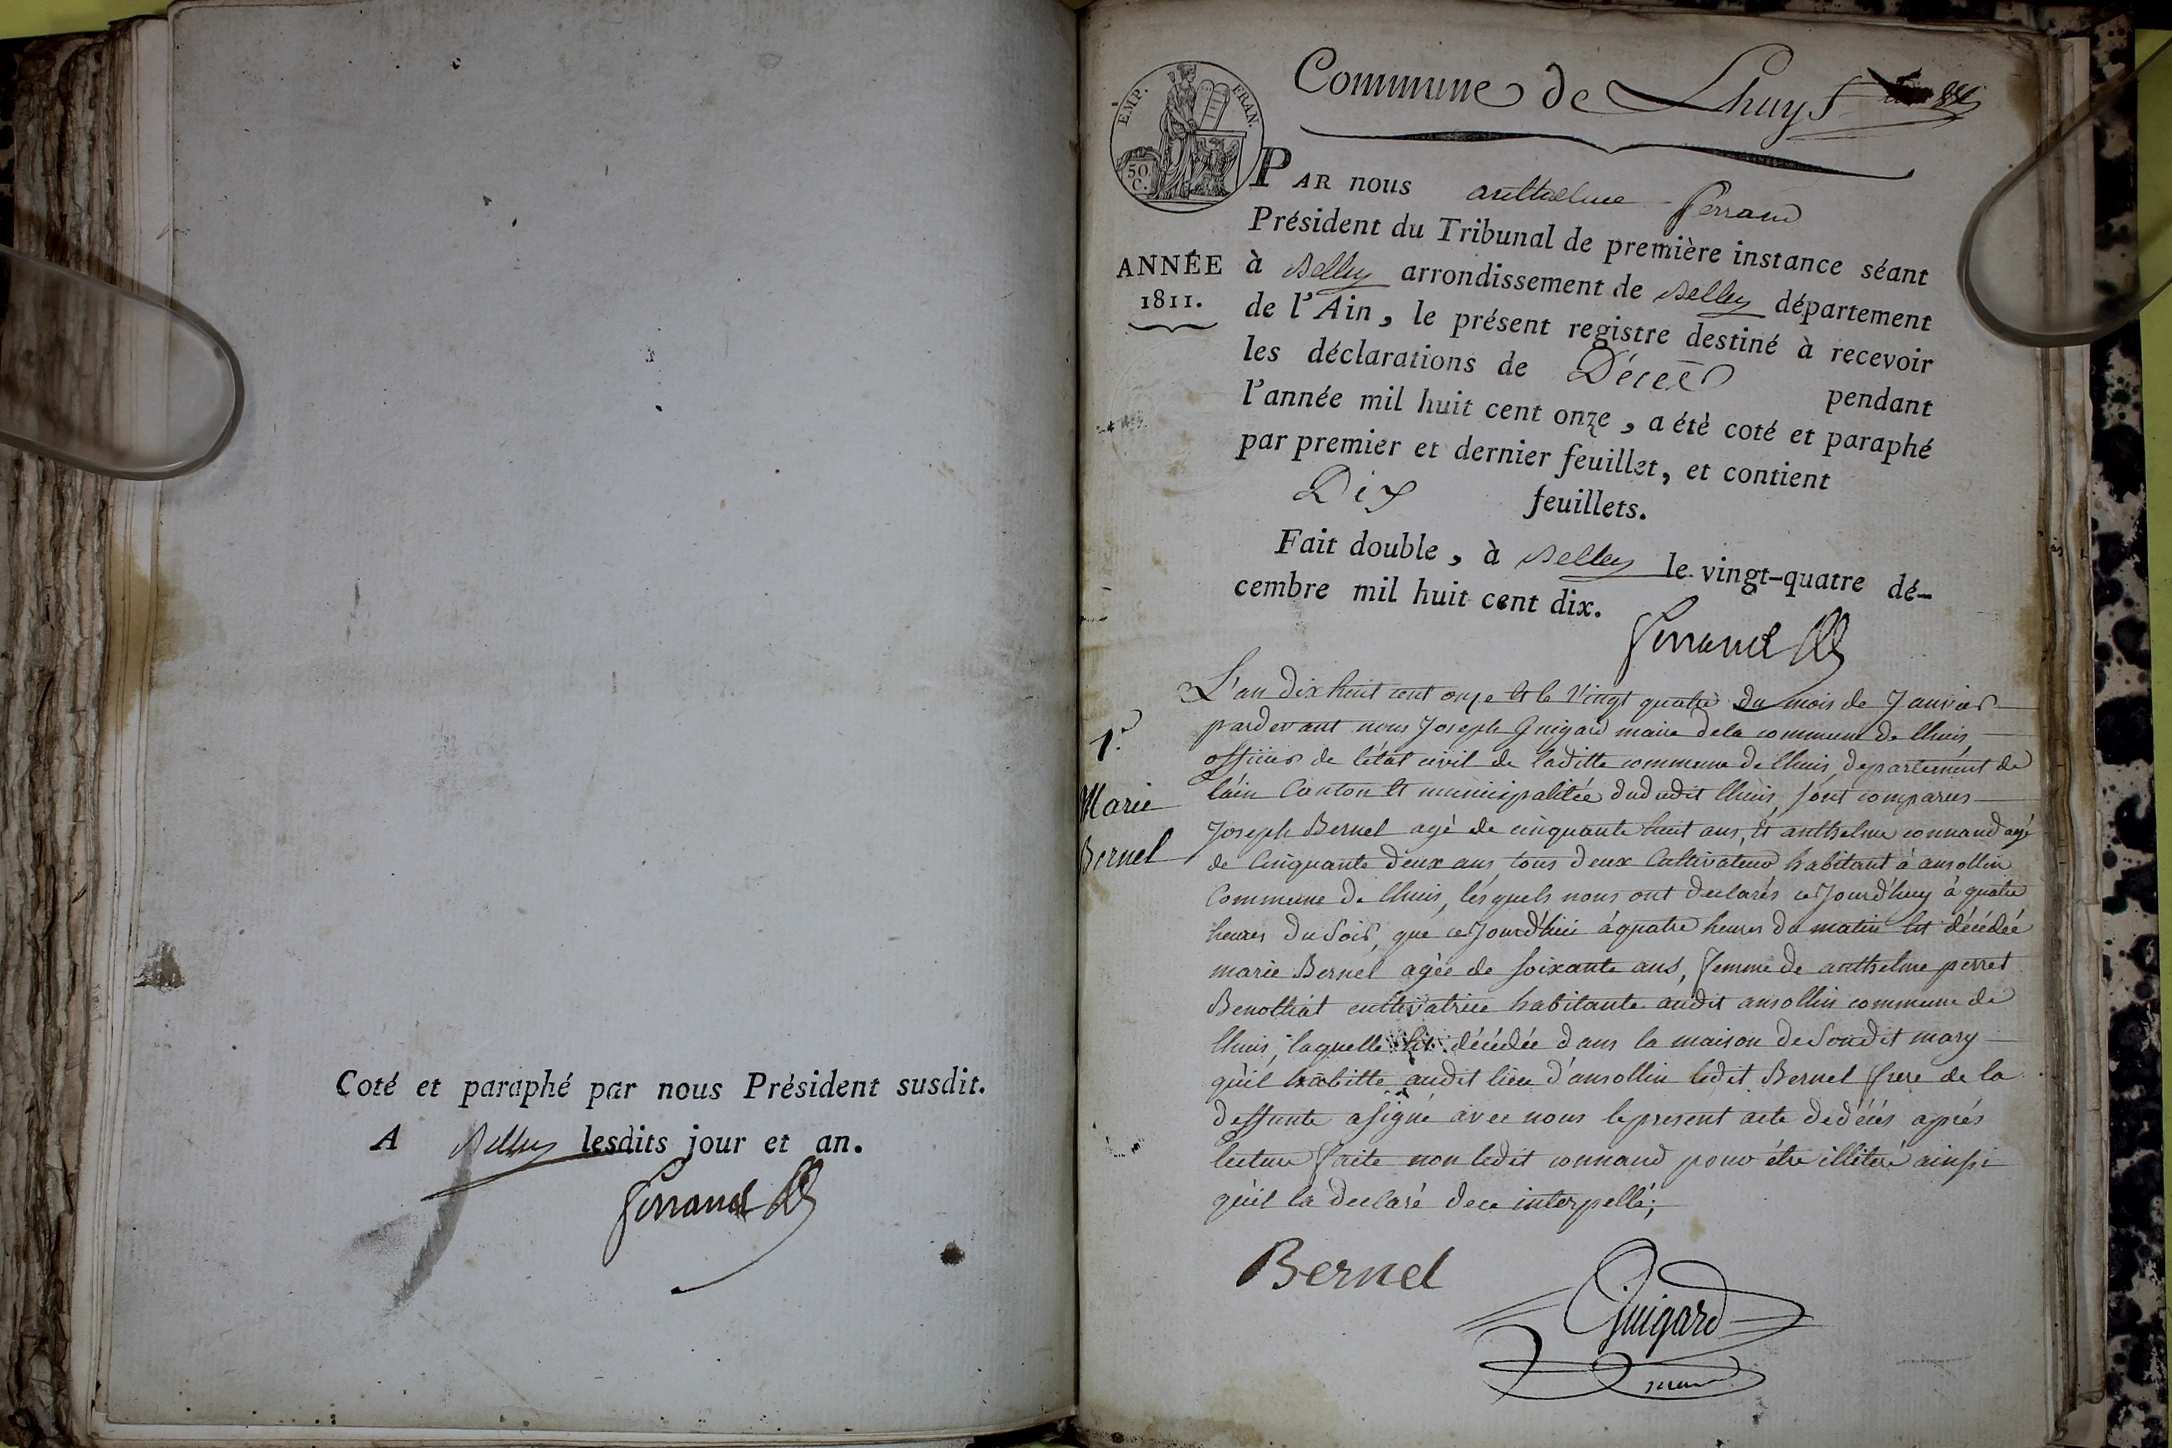 Coté et paraphé par nous Président susdit.
A Belley lesdits jour et an.
Ferrand
Commune de Lhuys
EMP. FRAN.
50 C.
ANNÉE
1811.
PAR nous anthelme ferrand
Président du Tribunal de première instance séant
à Belley arrondissement de Belley département
de l'Ain, le présent registre destiné à recevoir
les déclarations de Décès pendant
l'année mil huit cent onze, a été coté et paraphé
par premier et dernier feuillet, et contient
Dix feuillets.
Fait double, à Belley le vingt-quatre dé-
cembre mil huit cent dix.
Ferrand
1.r
Marie
Bernel
L'an dix huit cent onze et le vingt quatre du mois de Janvier
pardevant nous Joseph Guigard maire dela commune de lhuis
officier de létat civil de laditte commune de lhuis, departement de
láin Canton et municipalitée dududit lhuis, sont comparus
Joseph Bernel agé de cinquante huit ans, et anthelme connand agé
de Cinquante deux ans, tous deux Cultivateur habitant à ansollin
Commune de lhuis, lésquels nous ont declarés ce Jourd'huy à quatre
heures du Soir, que ce Jourd'hui à quatre heures du matin est décédée
marie Bernel agée de soixante ans, femme de anthelme perret
Benottiat cultivatrice habitante audit ansollin commune de
lhuis, laquelle est décédée dans la maison de Soudit mary
qu'il habitte audit lieu d'ansollin ledit Bernel frere de la
deffunte asigné avec nous le present acte dedécés aprés
lecture faite non ledit connand pour être illitéré ainsi
qu'il la declaré dece interpellé;
Bernel
Guigard
maire